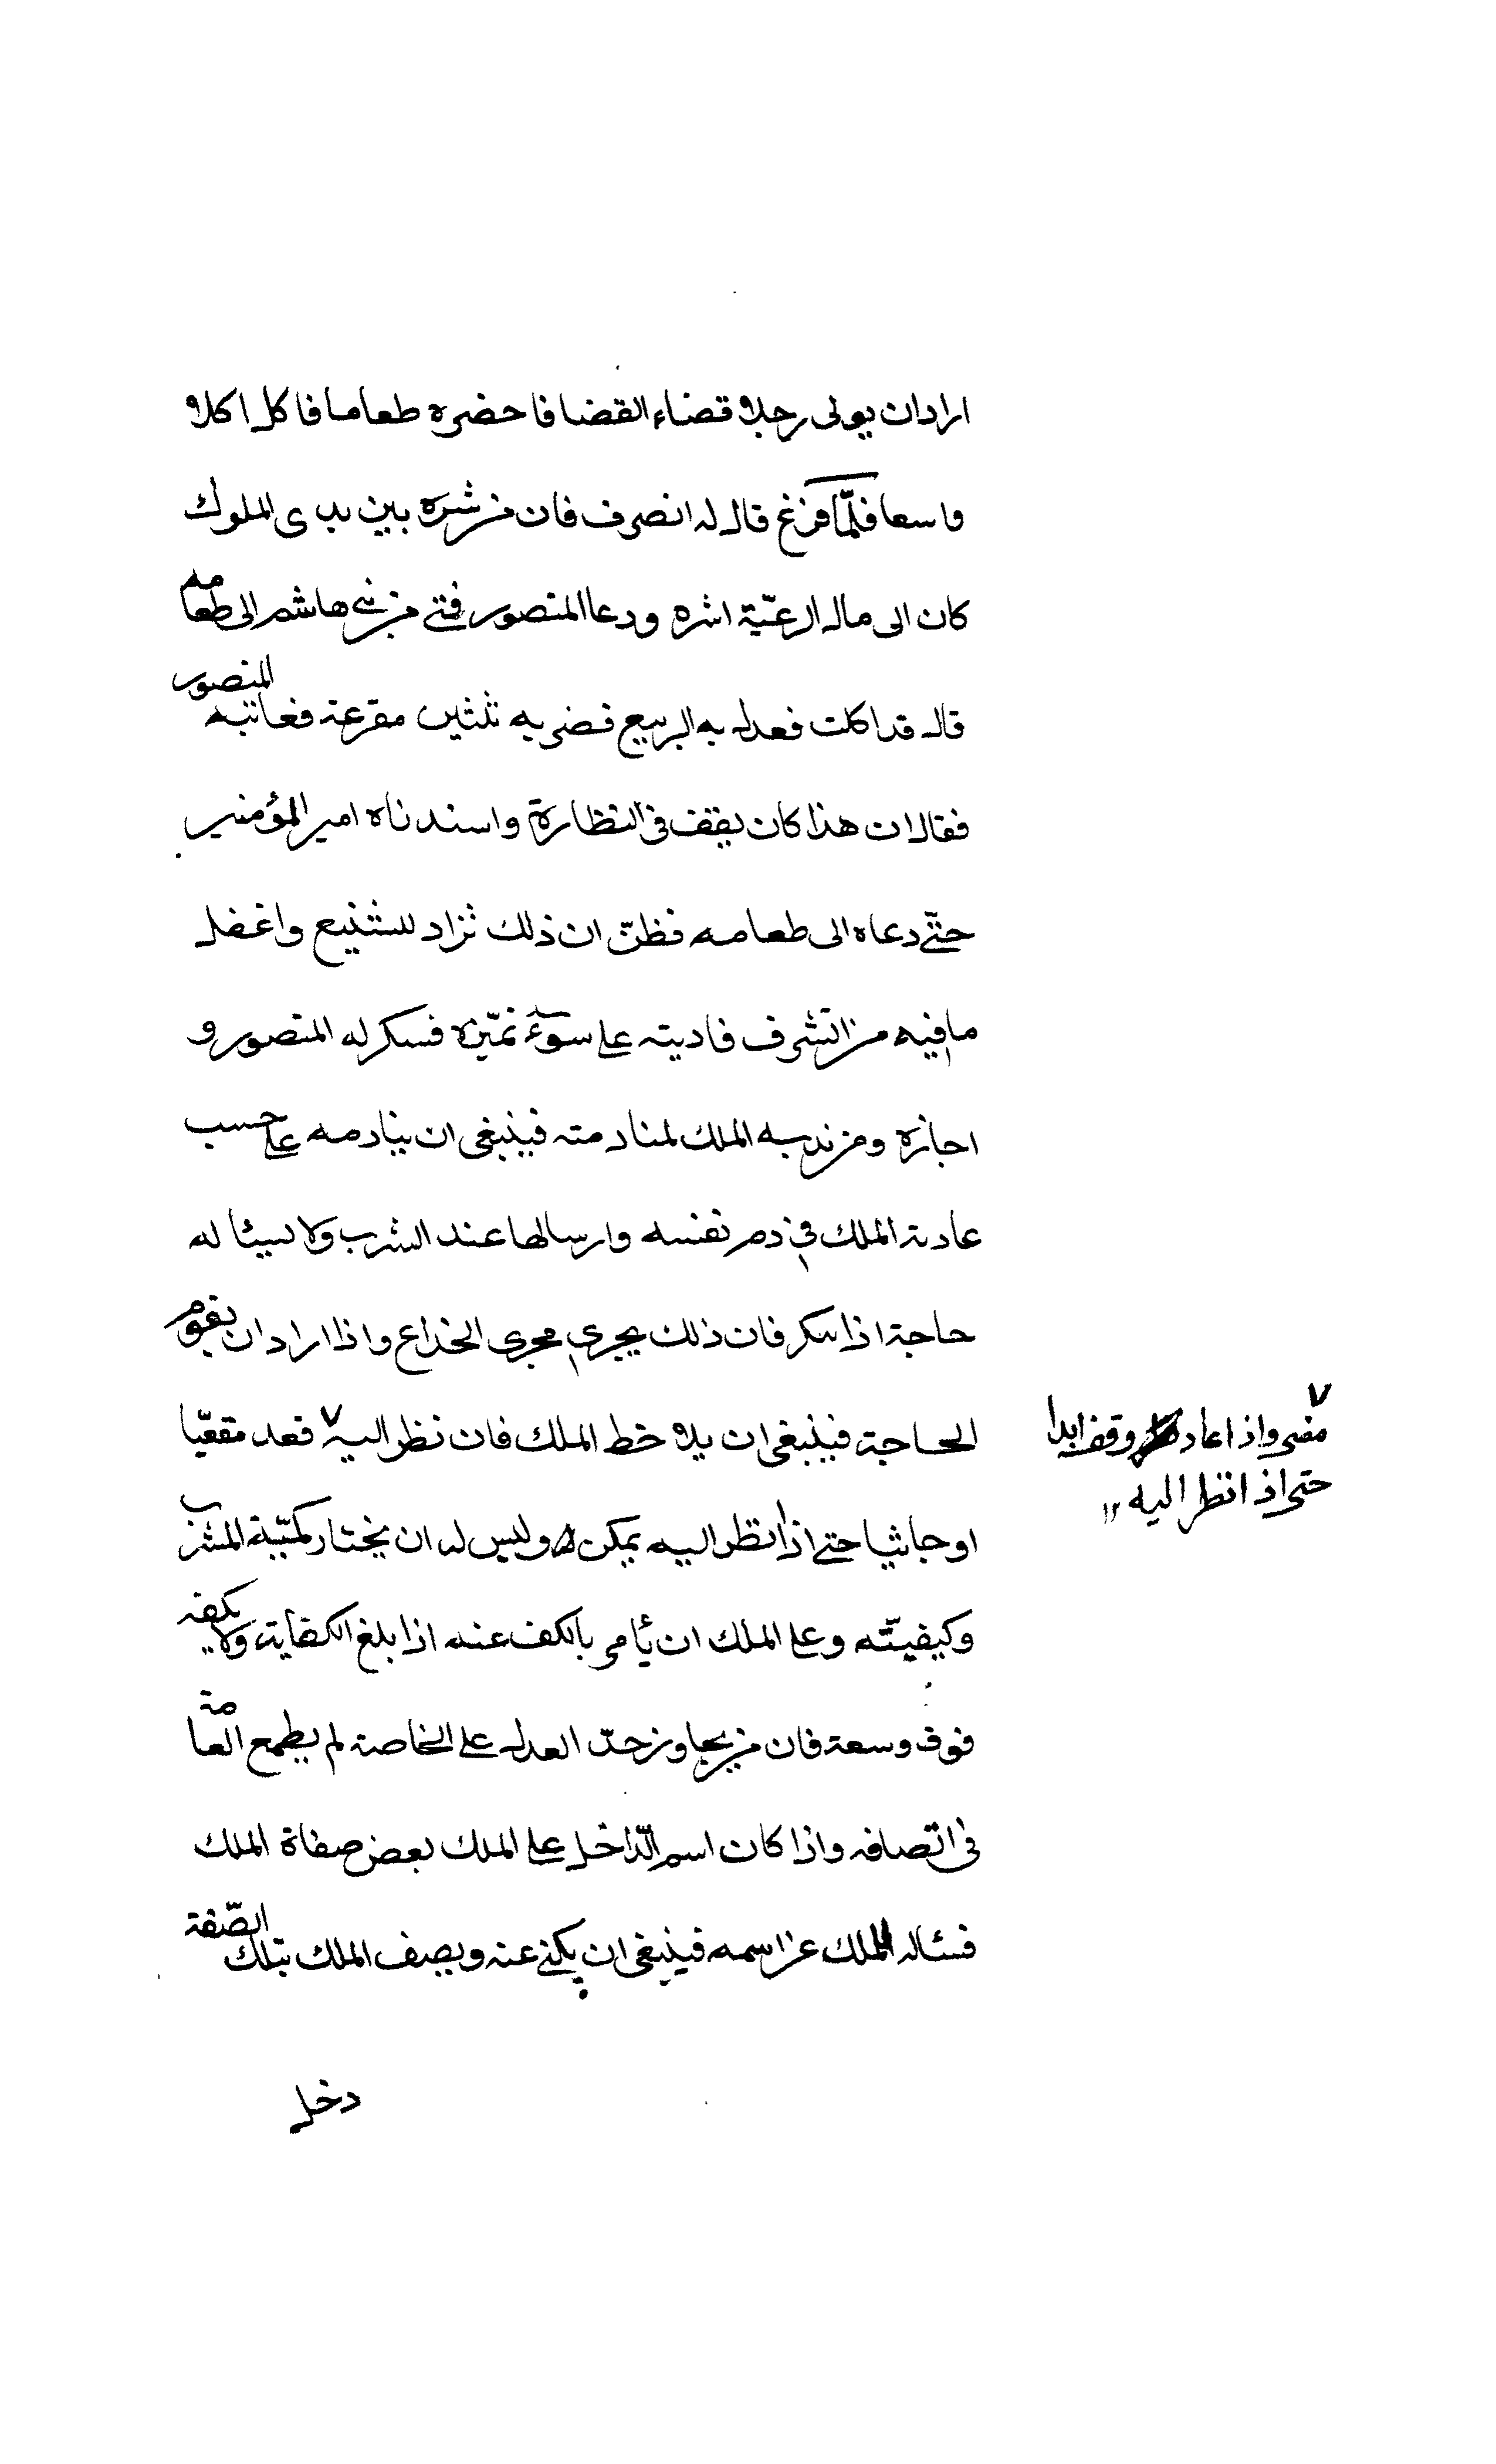 اراد ان يولى رجلا قضاء القضا فاحضره طعاما فاكل اكلا
واسعا فلمّا فرغ قال له انصرف فان من شره بين يدى الملوك
كان الى مال الرعيّة اشره ودعا المنصور فتى من بنى هاشم الى طعامه
قال قد اكلت فعدل به الربيع فضربه ثلثين مقرعة فعاتبه المنصور
فقال ان هذا كان يقف فى النظارة واستدناه امير المؤمنين
حتّى دعاه الى طعامه فظنّ ان ذلك تراد للشنيع واغفل
ما فيه من التشرف فادبته على سوء تميّزه فسكر له المنصور و
اجازه ومن ندبه الملك لمنادمته فينبغى ان ينادمه على حسب
عادة الملك فى ذم نفسه وارسالها عند الشرب ولا يسيئا له
حاجة اذا سكر فان ذلك يجرى مجرى الخداع واذا اراد ان يقوم
الحاجة فينبغى ان يلا خط الملك فان نظر اليه قعد مقعيّا
مضى واذا عاد وقف ابدا
حتى اذ انظر اليه
او جاثيا حتى اذا نظر اليه يمكن وليس له ان يختار كمّية المشرب
وكيفيّته وعلى الملك ان يأمر بالكف عنه اذا بلغ الكفاية ولا يكفه
فوق وسعة فان من يجاوز حدّ العدل على الخاصة لم يطمع العامة
فى اتصافه واذا كان اسم الدّاخل على الملك بعض صفاة الملك
فسئاله الملك عن اسمه فينبغى ان يكنى عنه ويصف الملك بتلك الصّفة
دخل